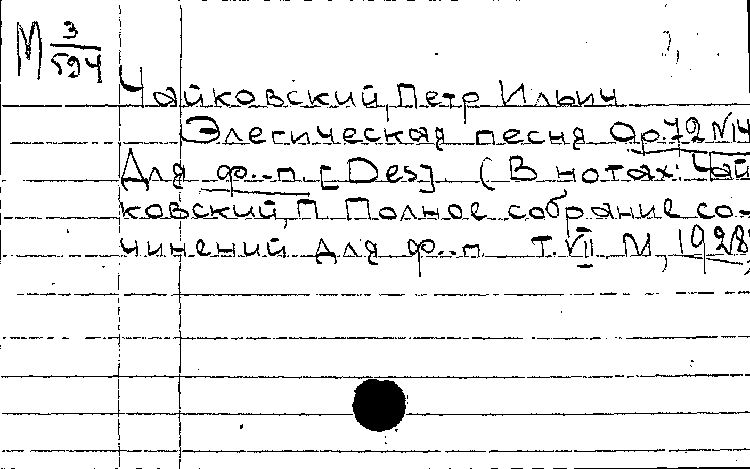 М 3/594
Чайковский, Петр Ильич
Элегическая песня Op. 72 N 14
Для ф.-п. [Des]. (В нотах: Чай
ковский, П. Полное собрание со-
чинений для ф.-п. т. VII М., 1928,